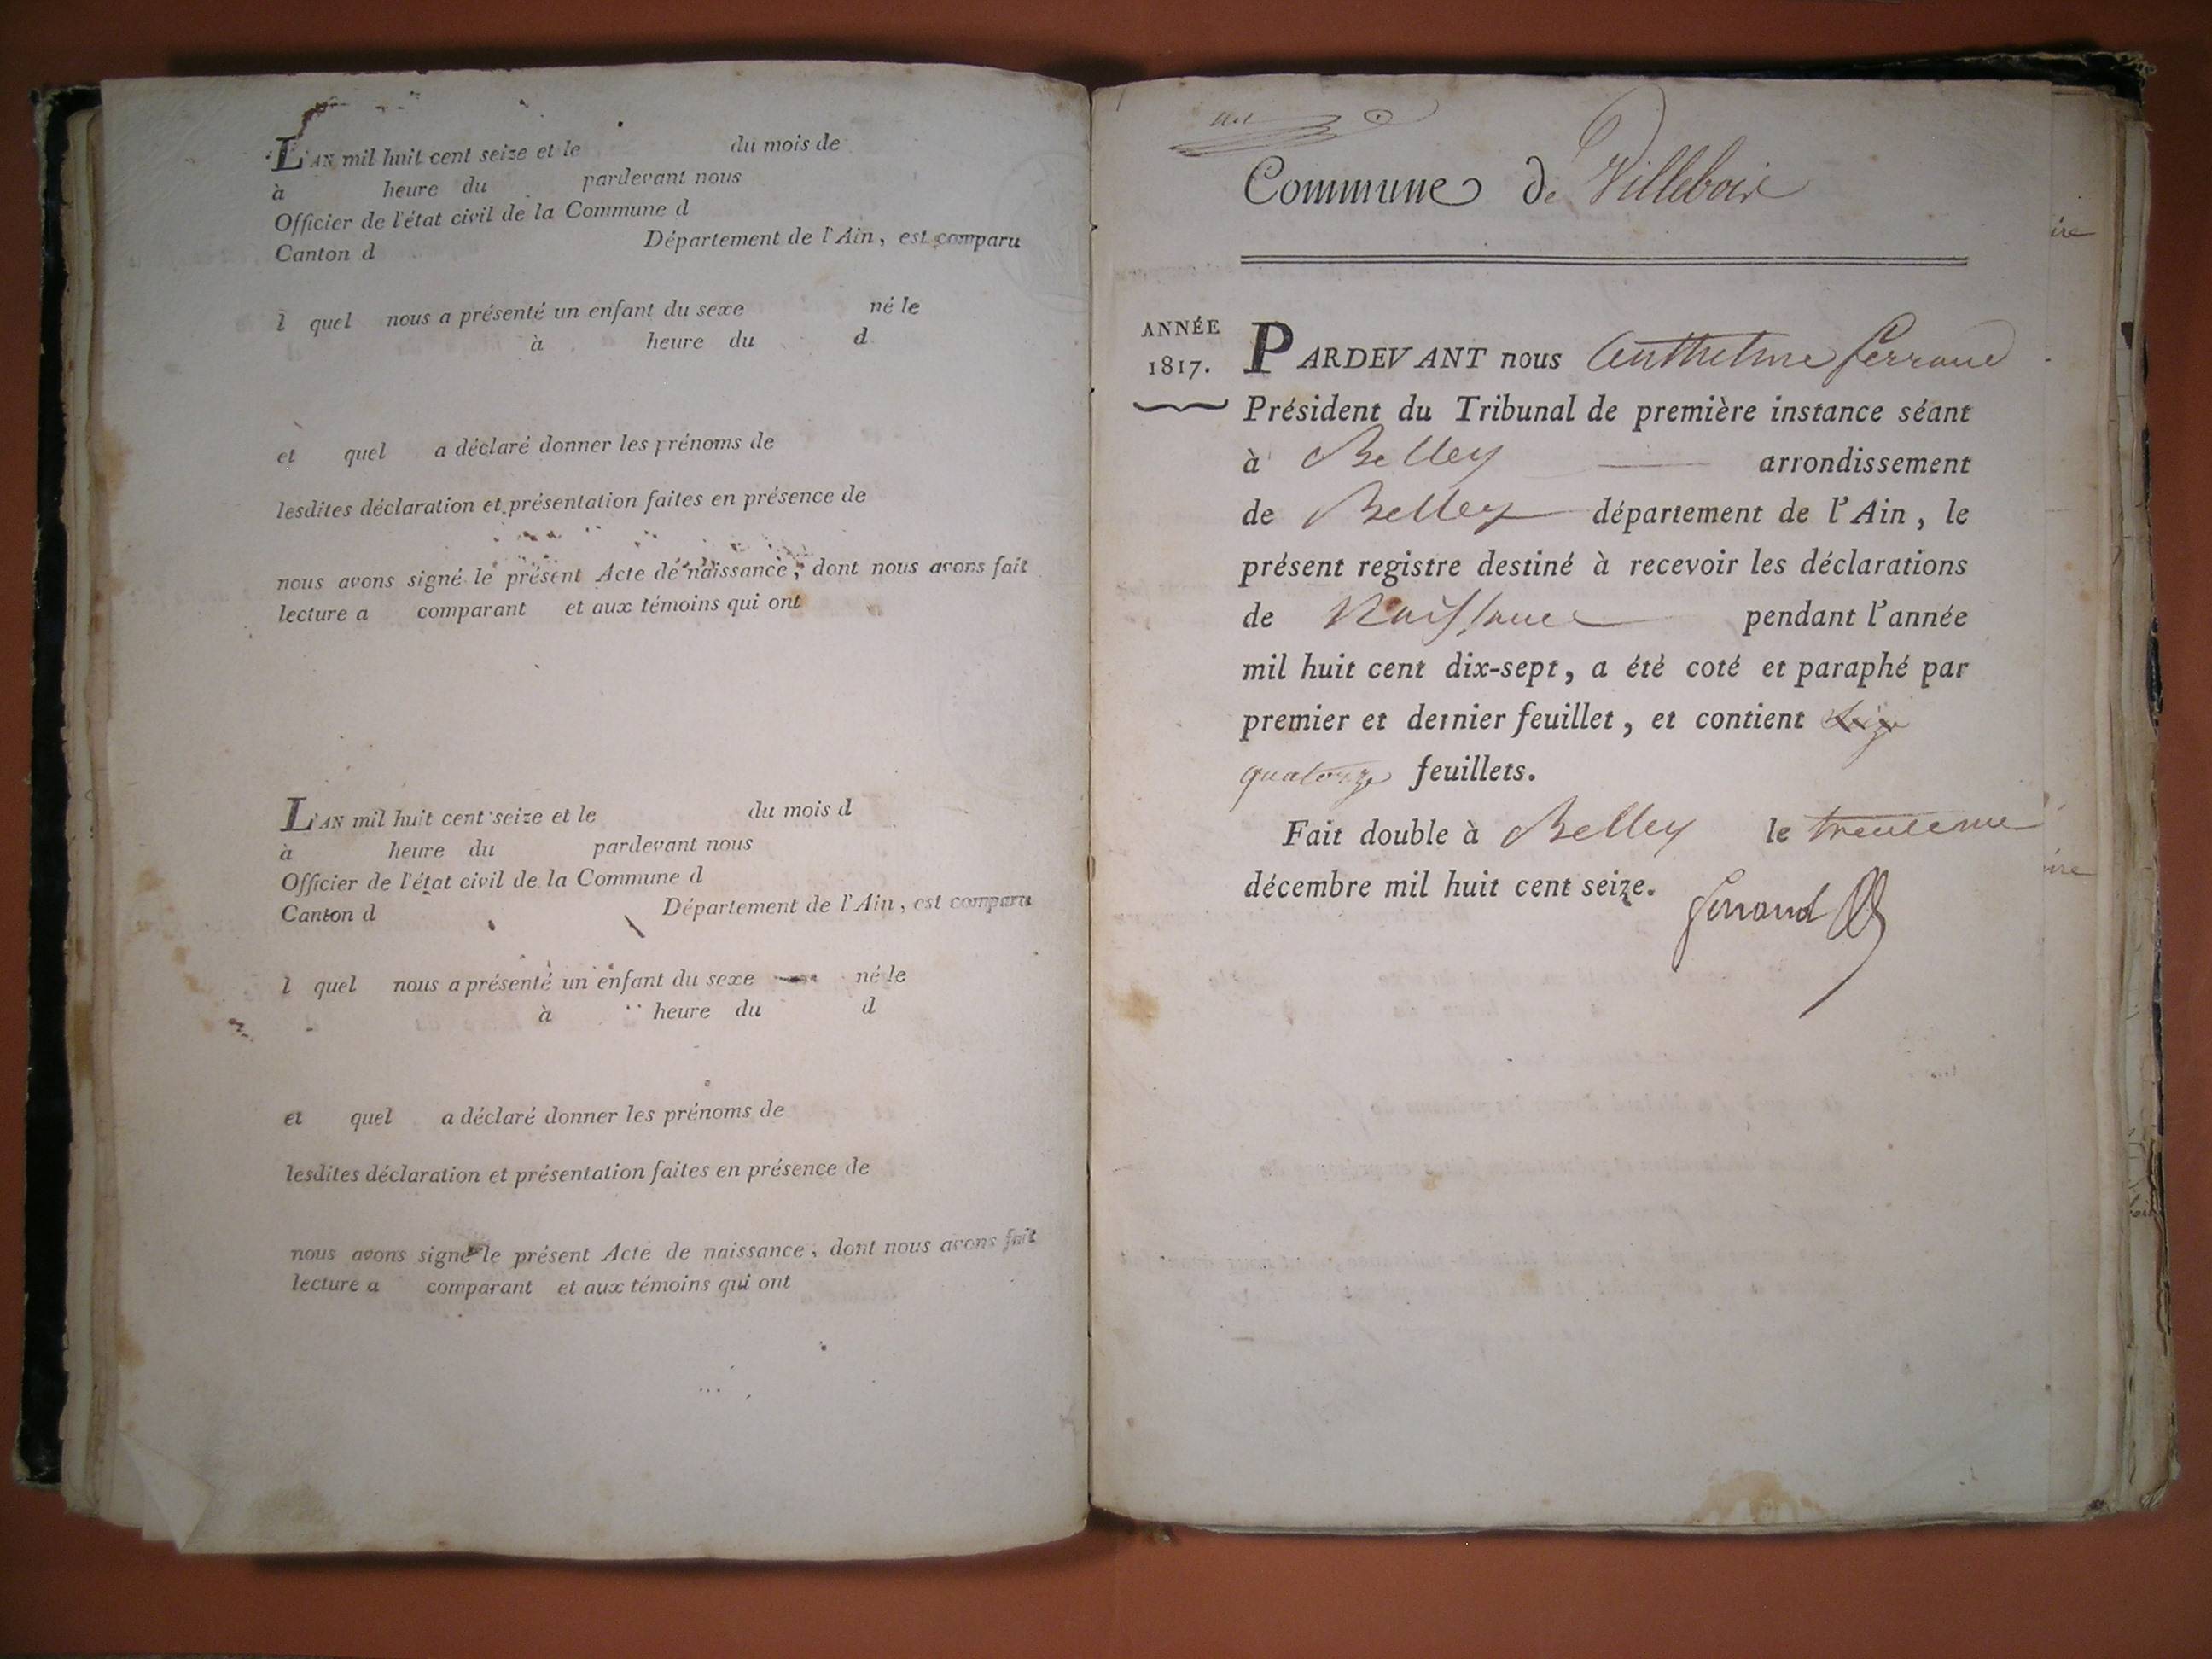 L'AN mil huit cent seize et le du mois de
à heure du pardevant nous
Officier de l'état civil de la Commune d
Canton d Département de l'Ain, est comparu
l quel nous a présenté un enfant du sexe né le
à heure du d
et quel a déclaré donner les prénoms de
lesdites déclaration et présentation faites en présence de
nous avons signé le présent Acte de naissance, dont nous avons fait
lecture a comparant et aux témoins qui ont
L'AN mil huit cent seize et le du mois d
à heure du pardevant nous
Officier de l'état civil de la Commune d
Canton d Département de l'Ain, est comparu
l quel nous a présenté un enfant du sexe né le
à heure du d
et quel a déclaré donner les prénoms de
lesdites déclaration et présentation faites en présence de
nous avons signé le présent Acte de naissance, dont nous avons fait
lecture a comparant et aux témoins qui ont
Commune de Villebois
ANNÉE
1817.
PARDEVANT nous Anthelme ferrand
Président du Tribunal de première instance séant
à Belley arrondissement
de Belley département de l'Ain, le
présent registre destiné à recevoir les déclarations
de Naissance pendant l'année
mil huit cent dix-sept, a été coté et paraphé par
premier et dernier feuillet, et contient seize
quatorze feuillets.
Fait double à Belley le trentieme
décembre mil huit cent seize.
ferrand